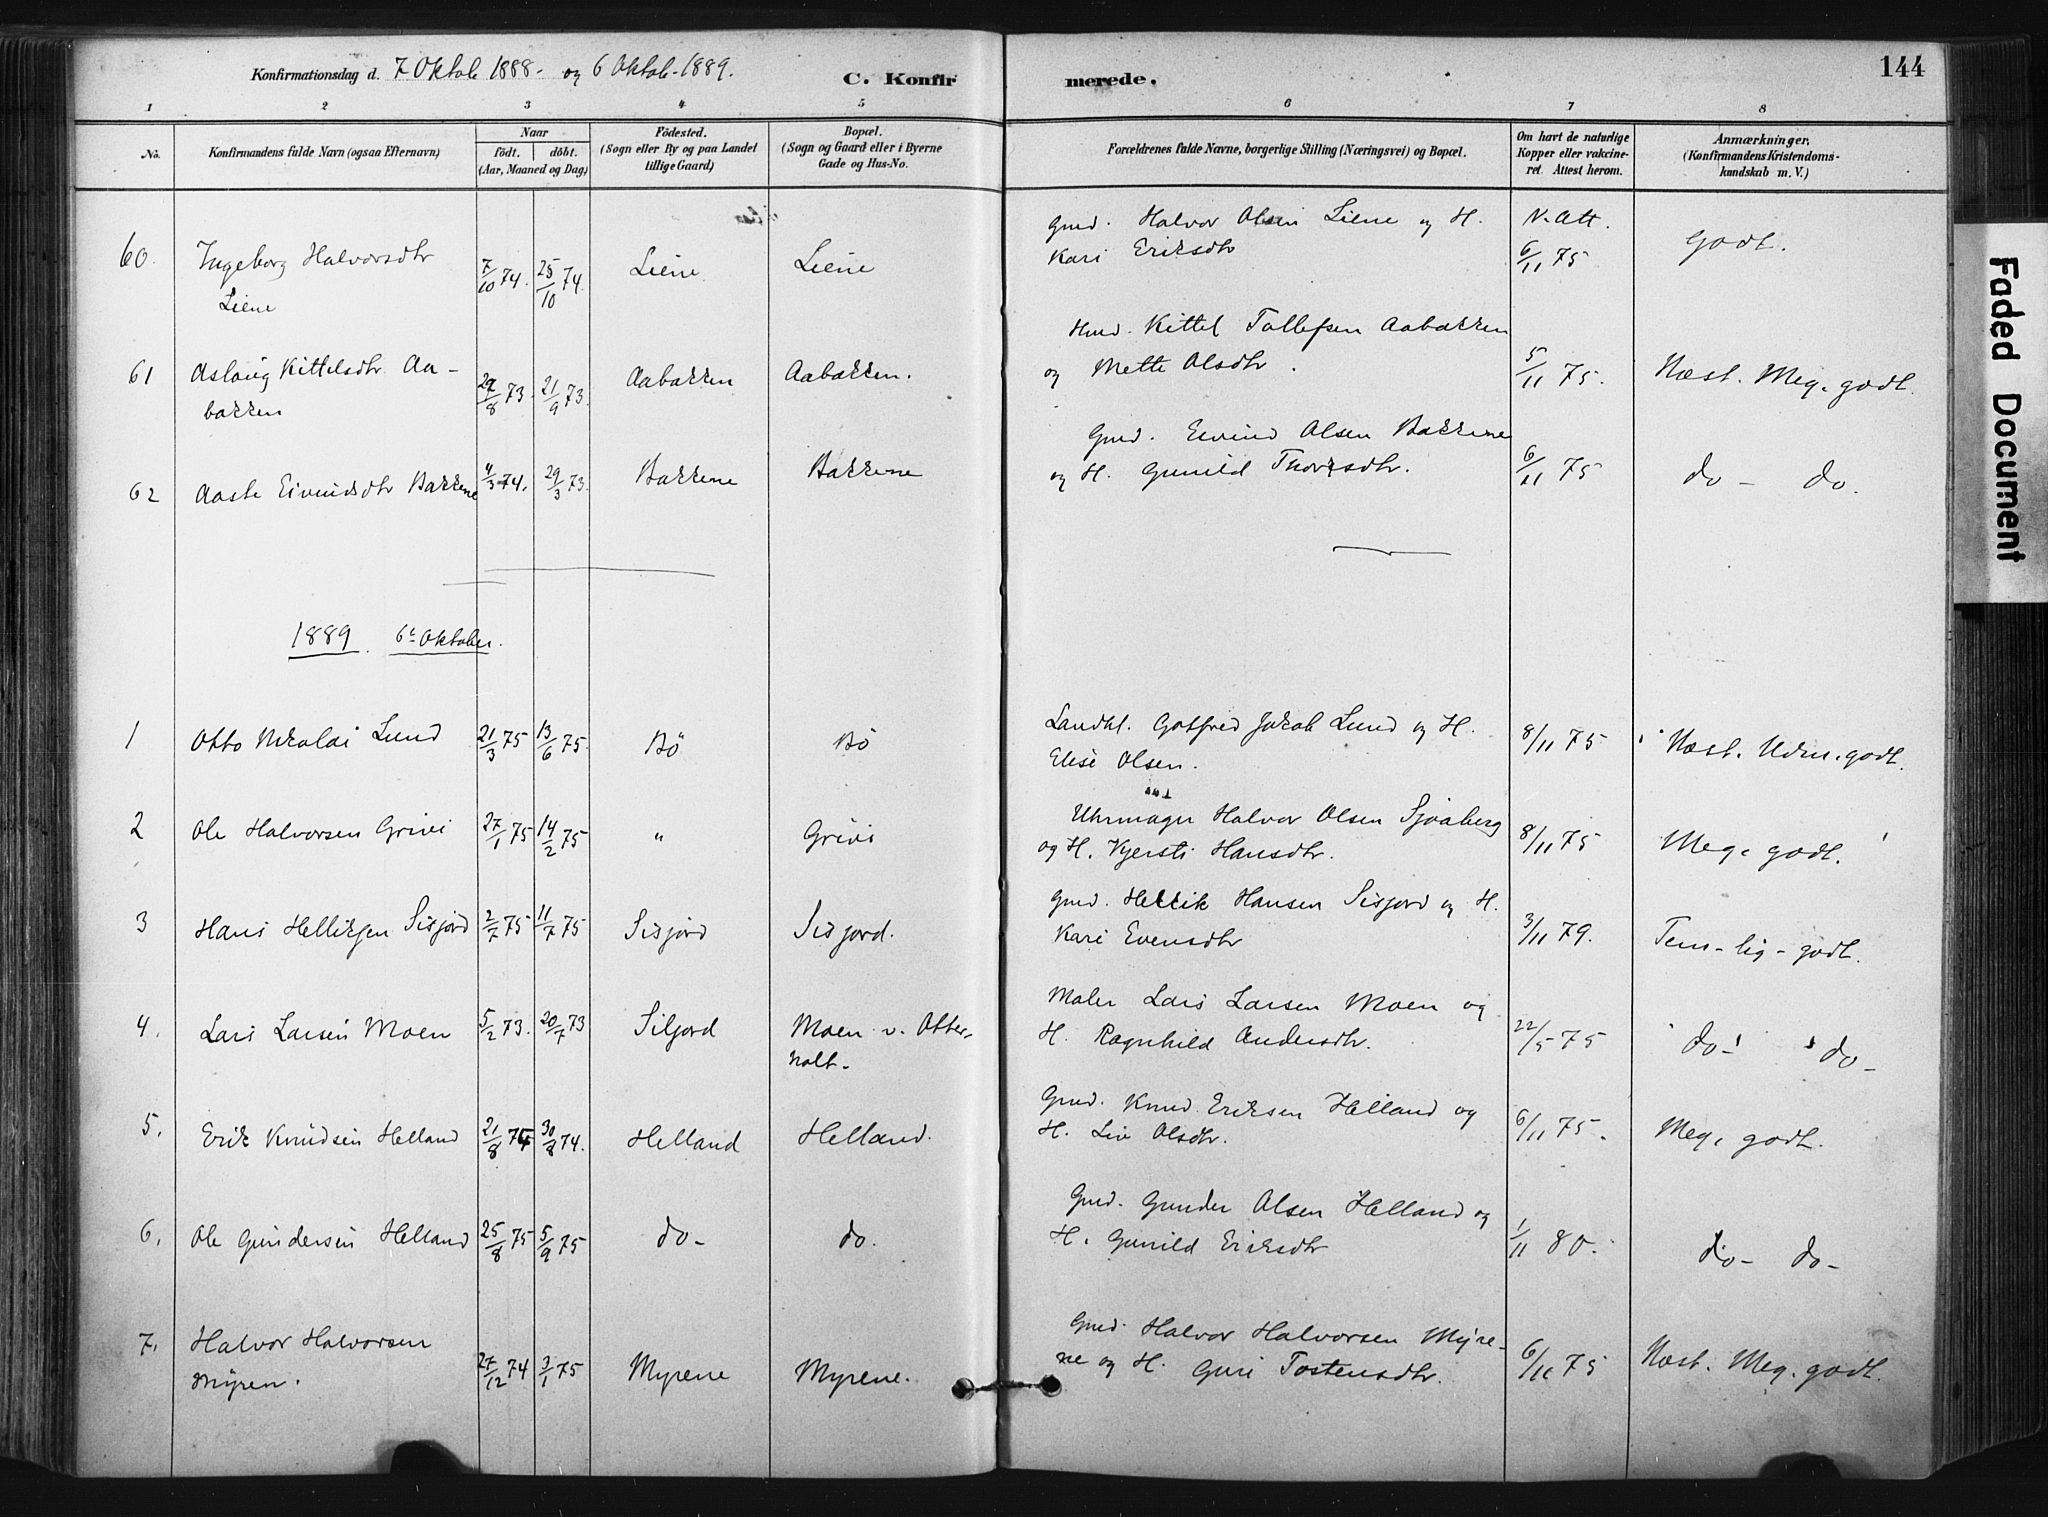 Konfirmationsdag d. 7 Oktob. 1888 - og 6 Oktob. 1889.
C. Konfirmerede.
144
1 2 3 4 5 6 7 8
No. Konfirmandens fulde Navn (ogsaa Efternavn) Naar født. døbt. (Aar, Maaned og Dag) Födested. (Sogn eller By og paa Landet tillige Gaard) Bopæl. (Sogn og Gaard eller i Byerne Gade og Hus-No. Forældrenes fulde Navne, borgerlige Stilling (Næringsvei) og Bopæl. Om havt de naturlige Kopper eller vakcineret. Attest herom. Anmærkninger. (Konfirmandens Kristendomskundskab m. V.)
60. Ingeborg Halvorsdtr Liene 7/10 74. 25/10 74. Liene Liene Gmd. Halvor Olsen Liene og H. Kari Eriksdtr N. Att. 6/11 75 Godt.
61 Aslaug Kittelsdtr. Aabakken 29/8 73. 21/9 73. Aabakken Aabakken. Hmd. Kittel Tollefsen Aabakken og Mette Olsdtr. 5/11 75. Næst. Meg. godt
62 Aaste Eivindsdtr Bakkene 4/3 74. 29/3 73. Bakkene Bakkene Gmd. Eivind Olsen Bakkene og H. Gunild Thorsdtr. 6/11 75 do - do.
1889. 6t Oktober.
1 Otto Nikolai Lund 21/3 75 13/6 75. Bö Bö Landhl. Gotfred Jakob Lund og H. Elise Olsen. 8/11 75 Næst. Udm. godt.
2 Ole Halvorsen Grivi 27/1 75 14/2 75 " Grivi Uhrmager Halvor Olsen Sjvaberg og H. Kjersti Hansdtr. 8/11 75 Meg. godt.
3 Hans Helliksen Sisjord 2/7 75 11/7 75 Sisjord Sisjord. Gmd. Hellik Hansen Sisjord og H. Kari Evensdtr 3/11 79. Tem-lig-godt.
4. Lars Larsen Moen 5/2 73. 20/7 73 Siljord Moen v. Otterholt. Maler Lars Larsen Moen og H. Ragnhild Andersdtr. 22/5 75 do - do -
5. Erik Knudsen Helland 21/8 74 30/8 74. Helland Helland. Gmd. Knud Eriksen Helland og H. Liv Olsdtr. 6/11 75. Meg. godt.
6. Ole Gundersen Helland 25/8 75 5/9 75 do - do. Gmd. Gunder Olsen Helland og H. Gunild Eriksdtr 1/11 80. do - do -
7. Halvor Halvorsen Myren. 27/12 74 3/1 75 Myrene Myrene. Gmd. Halvor Halvorsen Myrene og H. Guri Tostensdtr. 6/11 75 Næst. Meg. godt.
Faded Document